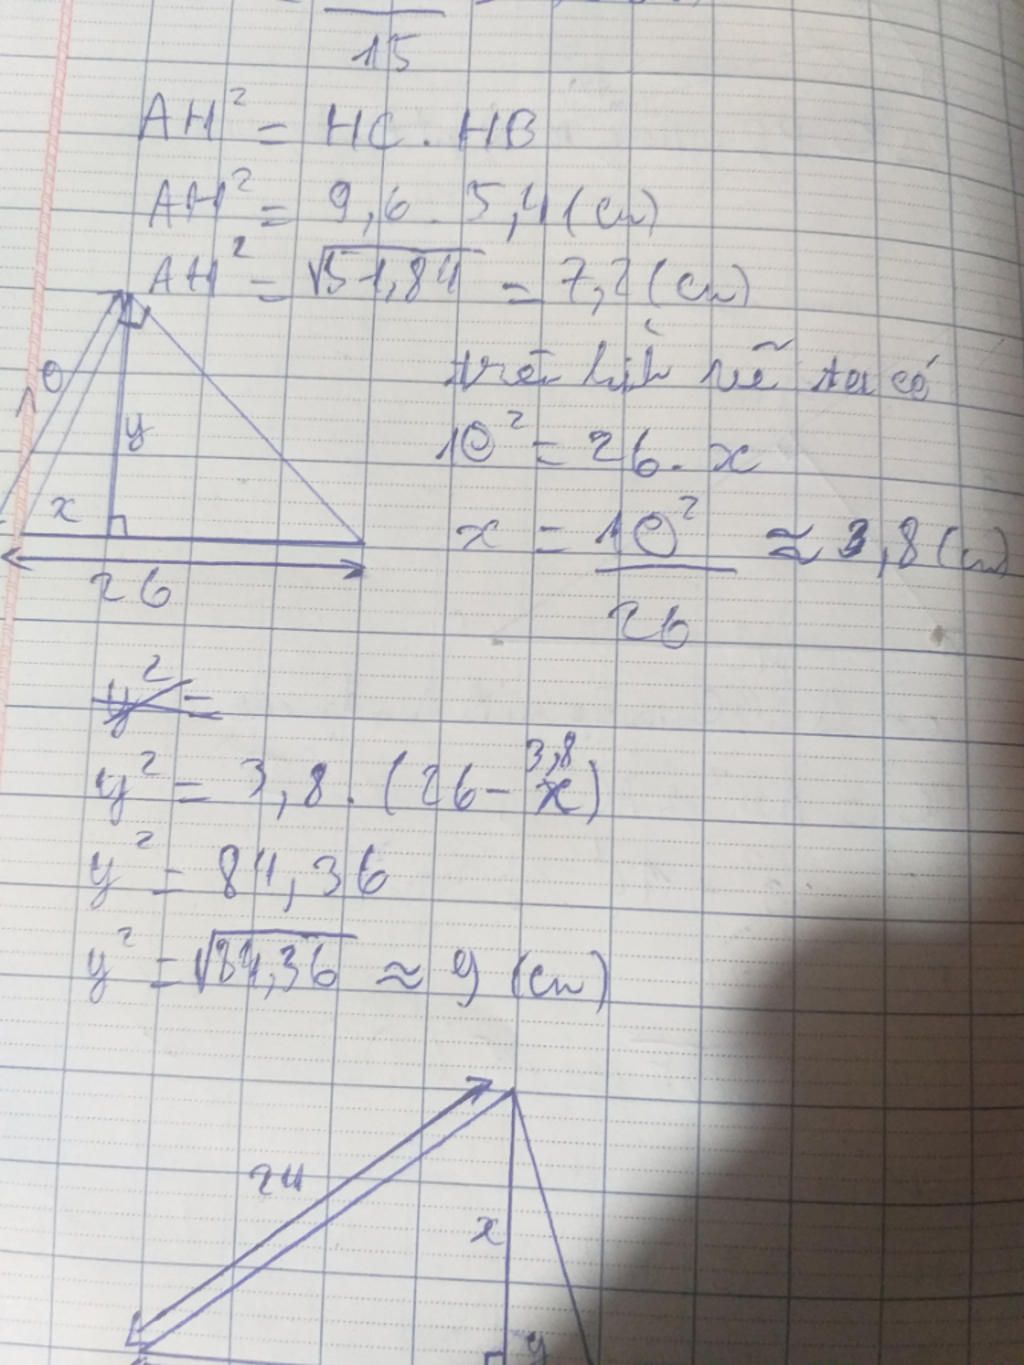 15
AH² = HC . HB
AH² = 9,6 . 5,4 (cm)
AH² = √51,84 = 7,2 (cm)
trên hình vẽ ta có
10
y
x
26
10² = 26 . x
x = 10² / 26 ≈ 3,8 (cm)
y² =
3,8
y² = 3,8 . (26 - x)
y² = 84,36
y² = √84,36 ≈ 9 (cm)
24
x
y